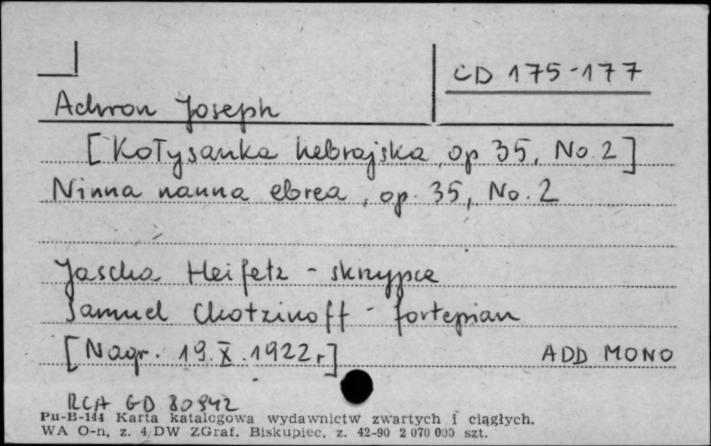 CD 175-177
Achron Joseph
[Kołysanka hebrajska, op 35, No. 2]
Ninna nanna ebrea, op. 35, No. 2
Jascha Heifetz - skrzypce
Samuel Chotzinoff - fortepian
[Nagr. 19.X.1922r]
ADD MONO
RCA GD 80942
Pu-B-144 Karta katalogowa wydawnictw zwartych i ciągłych.
WA O-n, z. 4/DW ZGraf. Biskupiec, z. 42-90 2 070 000 szt.